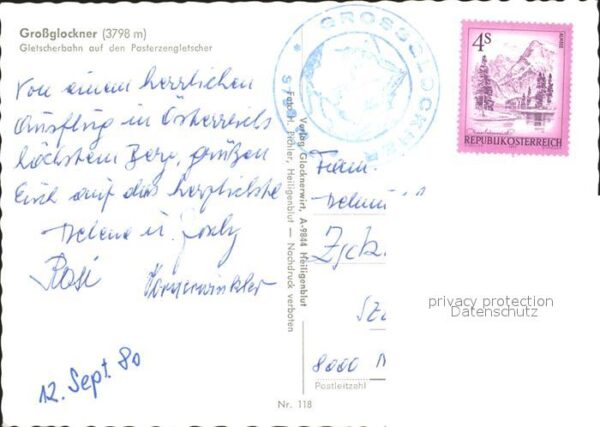 Großglockner (3798 m)
Gletscherbahn auf den Pasterzengletscher
Von einem herrlichen
Ausflug in Österreichs
höchstem Berg, grüßen
Euch auf das herzlichste
Helene u.
Rosi
12. Sept. 80
GROSSGLOCKNER
4S
REPUBLIK ÖSTERREICH
Verlag Glocknerwirt, A-9844 Heiligenblut
Foto: H. Pichler, Heiligenblut — Nachdruck verboten
Fam.
privacy protection
Datenschutz
8000
Postleitzahl
Nr. 118